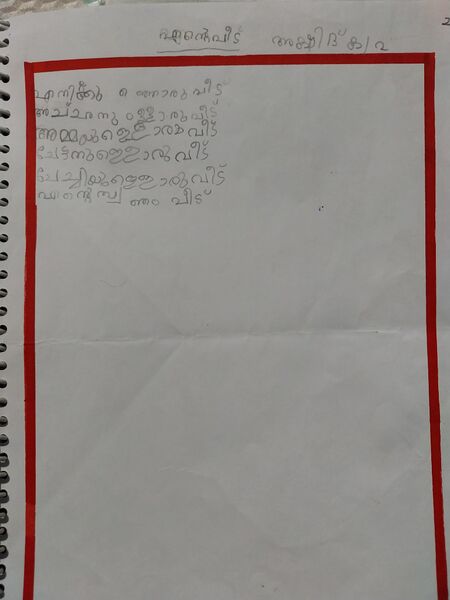 എന്റെവീട് അക്ഷിദ് ക/ 2
എനിക്കു ണ്ടൊരു വീട്
അച്ഛനു ള്ളൊരു വീട്
അമ്മയുള്ളൊരു വീട്
ചേട്ടനുള്ളൊരു വീട്
ചേച്ചിയുള്ളൊരുവീട്
എന്റെ സ്വ ന്തം വീട്